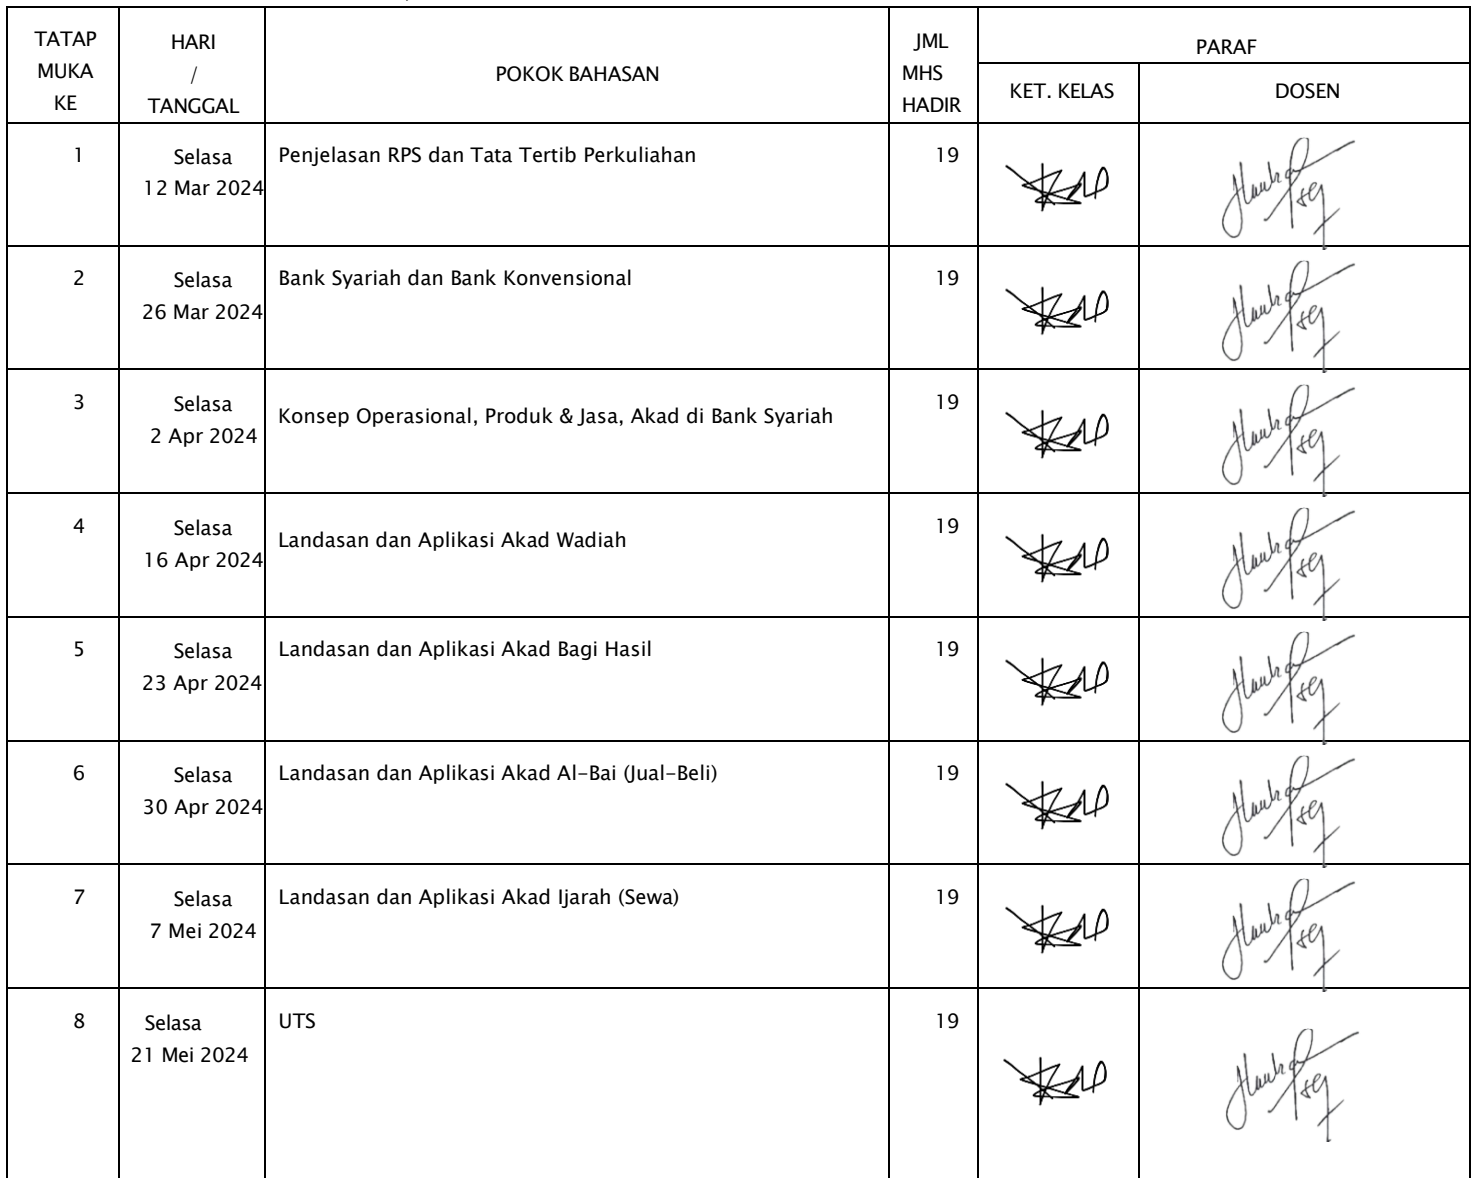 TATAP MUKA KE
HARI / TANGGAL
POKOK BAHASAN
JML MHS HADIR
PARAF
KET. KELAS
DOSEN
1
Selasa
12 Mar 2024
Penjelasan RPS dan Tata Tertib Perkuliahan
19
2
Selasa
26 Mar 2024
Bank Syariah dan Bank Konvensional
19
3
Selasa
2 Apr 2024
Konsep Operasional, Produk & Jasa, Akad di Bank Syariah
19
4
Selasa
16 Apr 2024
Landasan dan Aplikasi Akad Wadiah
19
5
Selasa
23 Apr 2024
Landasan dan Aplikasi Akad Bagi Hasil
19
6
Selasa
30 Apr 2024
Landasan dan Aplikasi Akad Al-Bai (Jual-Beli)
19
7
Selasa
7 Mei 2024
Landasan dan Aplikasi Akad Ijarah (Sewa)
19
8
Selasa
21 Mei 2024
UTS
19